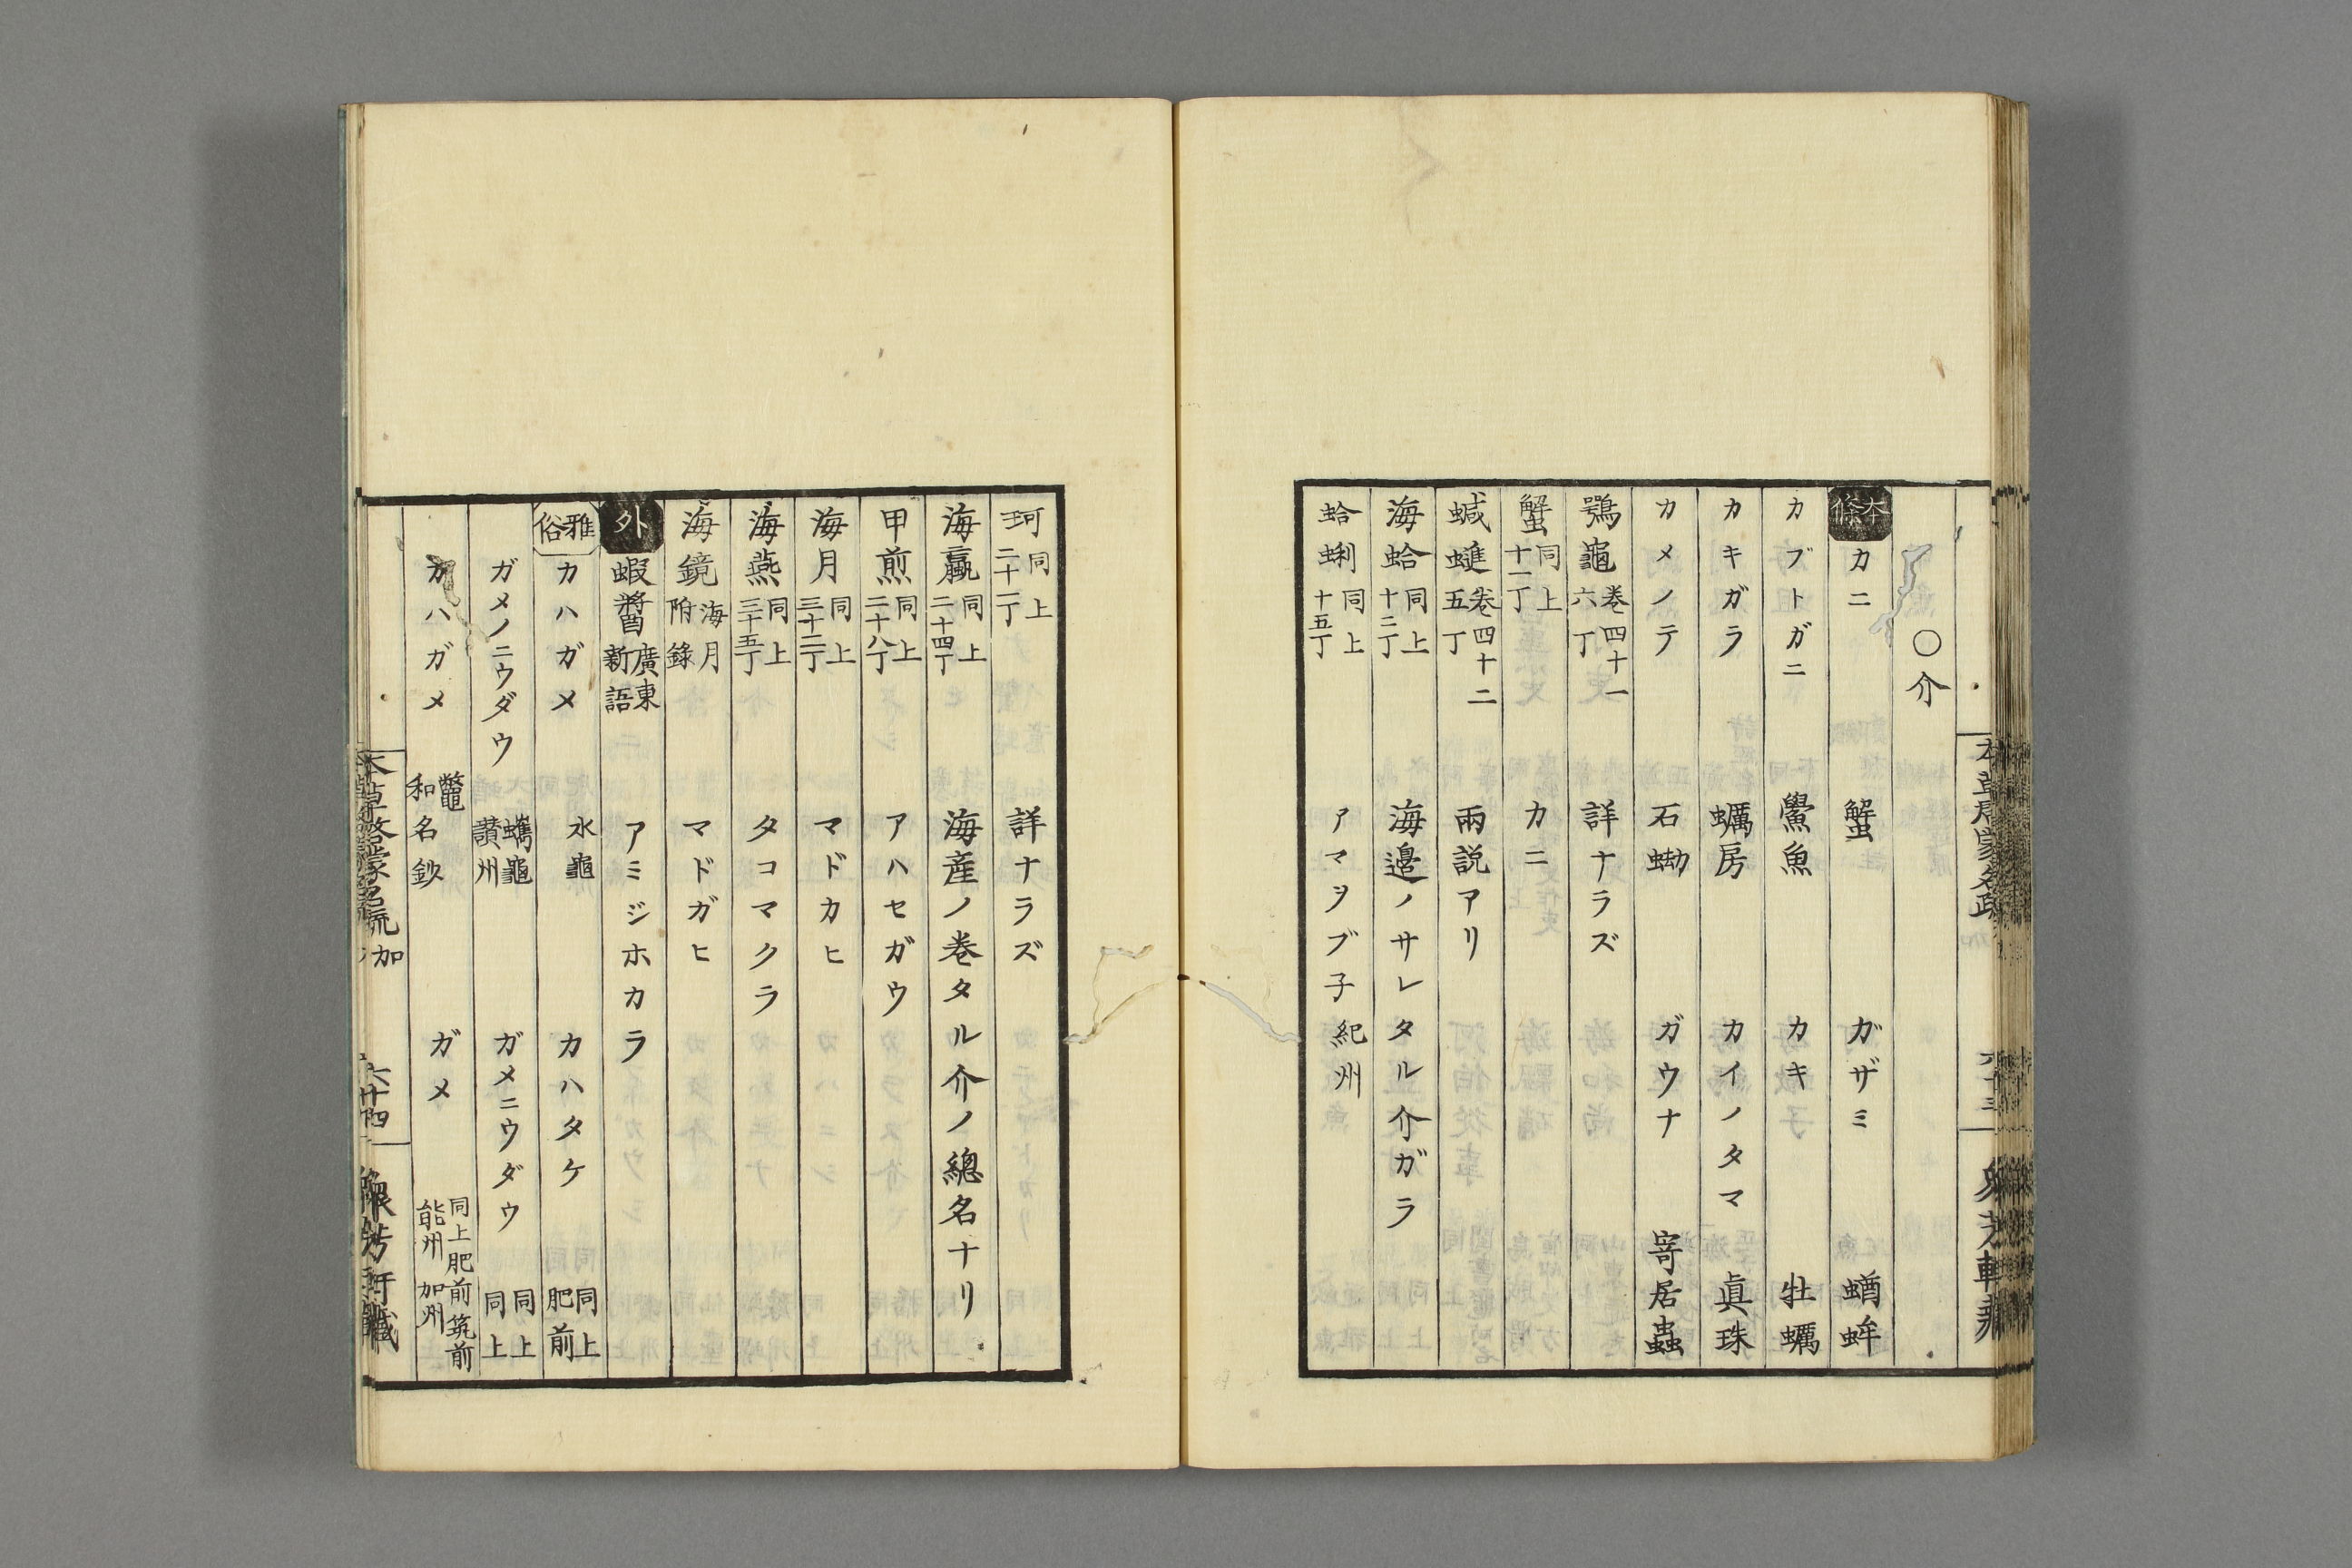 〇介
本條 カニ 蟹 ガザミ 蝤蛑
カブトガニ 鱟魚 カキ 牡蠣
カキガラ 蠣房 カイノタマ 眞珠
カメノテ 石蜐 ガウナ 寄居蟲
鶚龜 卷四十一 六丁 詳ナラズ
蟹 同上 十一丁 カニ
蝛䗯 卷四十二 五丁 兩説アリ
海蛤 同上 十二丁 海邉ノサレタル介ガラ
蛤蜊 同上 十五丁 アマヲブ子 紀州
珂 同上 二十二丁 詳ナラズ
海蠃 同上 二十四丁 海産ノ巻タル介ノ總名ナリ
甲煎 同上 二十八丁 アハセガウ
海月 同上 三十二丁 マドカヒ
海燕 同上 三十五丁 タコマクラ
海鏡 海月附錄 マドガヒ
外 蝦醬 廣東新語 アミジホカラ
雅俗 カハガメ 水龜 カハタケ 同上 肥前
ガメノニウダウ 蠵龜 讃州 ガメニウダウ 同上 同上
カハガメ 鼈 和名鈔 ガメ 同上 肥前 筑前 能州 加州
本草啓蒙名疏 加 六 廿四 衆芳軒藏